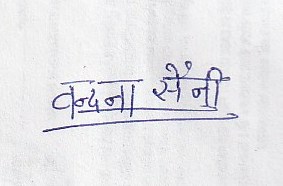 वन्दना सैनी